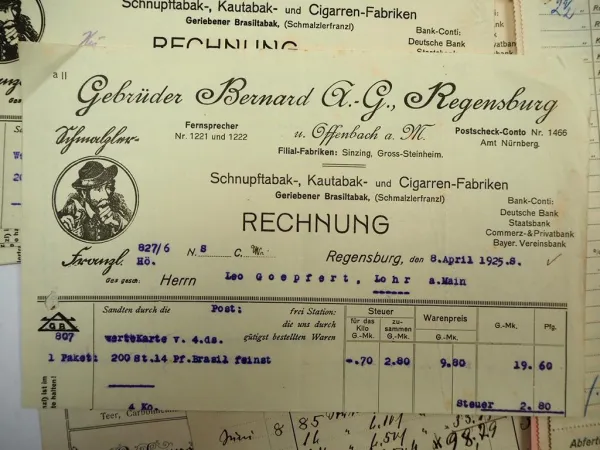 Schnupftabak-, Kautabak- und Cigarren-Fabriken
Geriebener Brasiltabak, (Schmalzlerfranzl)
Bank-Conti:
Deutsche Bank
RECHNUNG
a ||
Gebrüder Bernard A.-G., Regensburg
Schmalzler-
Fernsprecher
Nr. 1221 und 1222
u. Offenbach a. M.
Postscheck-Conto Nr. 1466
Amt Nürnberg.
Filial-Fabriken: Sinzing, Gross-Steinheim.
Schnupftabak-, Kautabak- und Cigarren-Fabriken
Geriebener Brasiltabak, (Schmalzlerfranzl)
Bank-Conti:
Deutsche Bank
Staatsbank
Commerz-&Privatbank
Bayer. Vereinsbank
RECHNUNG
Franzl.
Ges. gesch.
827/6
Hö.
N. 8 C.
Regensburg, den 8.April 1925.8.
Herrn Leo Goepfert, Lohr a.Main
Sandten durch die Post: frei Station:
die uns durch
Steuer
für das Kilo G.-Mk.
zu-sammen G.-Mk.
Warenpreis
G.-Mk.
G.-Mk.
Pfg.
GB
807 werteKarte v. 4.ds. gütigst bestellten Waren
1 Paket: 200 St.14 Pf.Brasil feinst -.70 2.80 9.80 19.60
4 Ko.
Steuer 2.80
Teer,
Juni 8 85
98.29